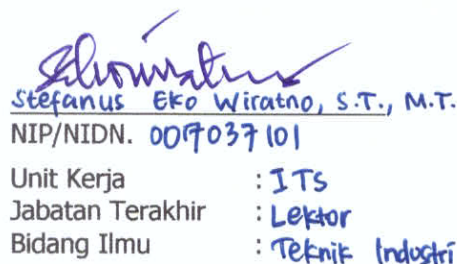 Stefanus Eko Wiratno, S.T., M.T.
NIP/NIDN. 0017037101
Unit Kerja : ITS
Jabatan Terakhir : Lektor
Bidang Ilmu : Teknik Industri